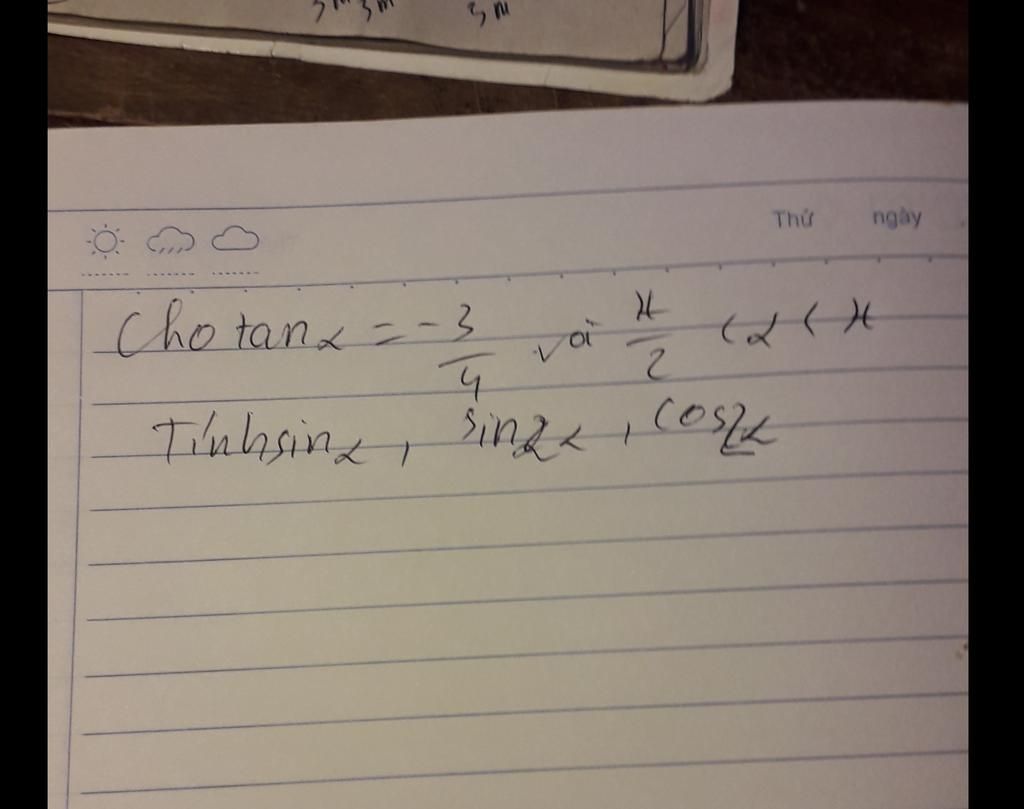 3m 3m 3m
Thứ ngày
Cho tanα = -3/4 với π/2 < α < π
Tính sinα, sin2α, cos2α